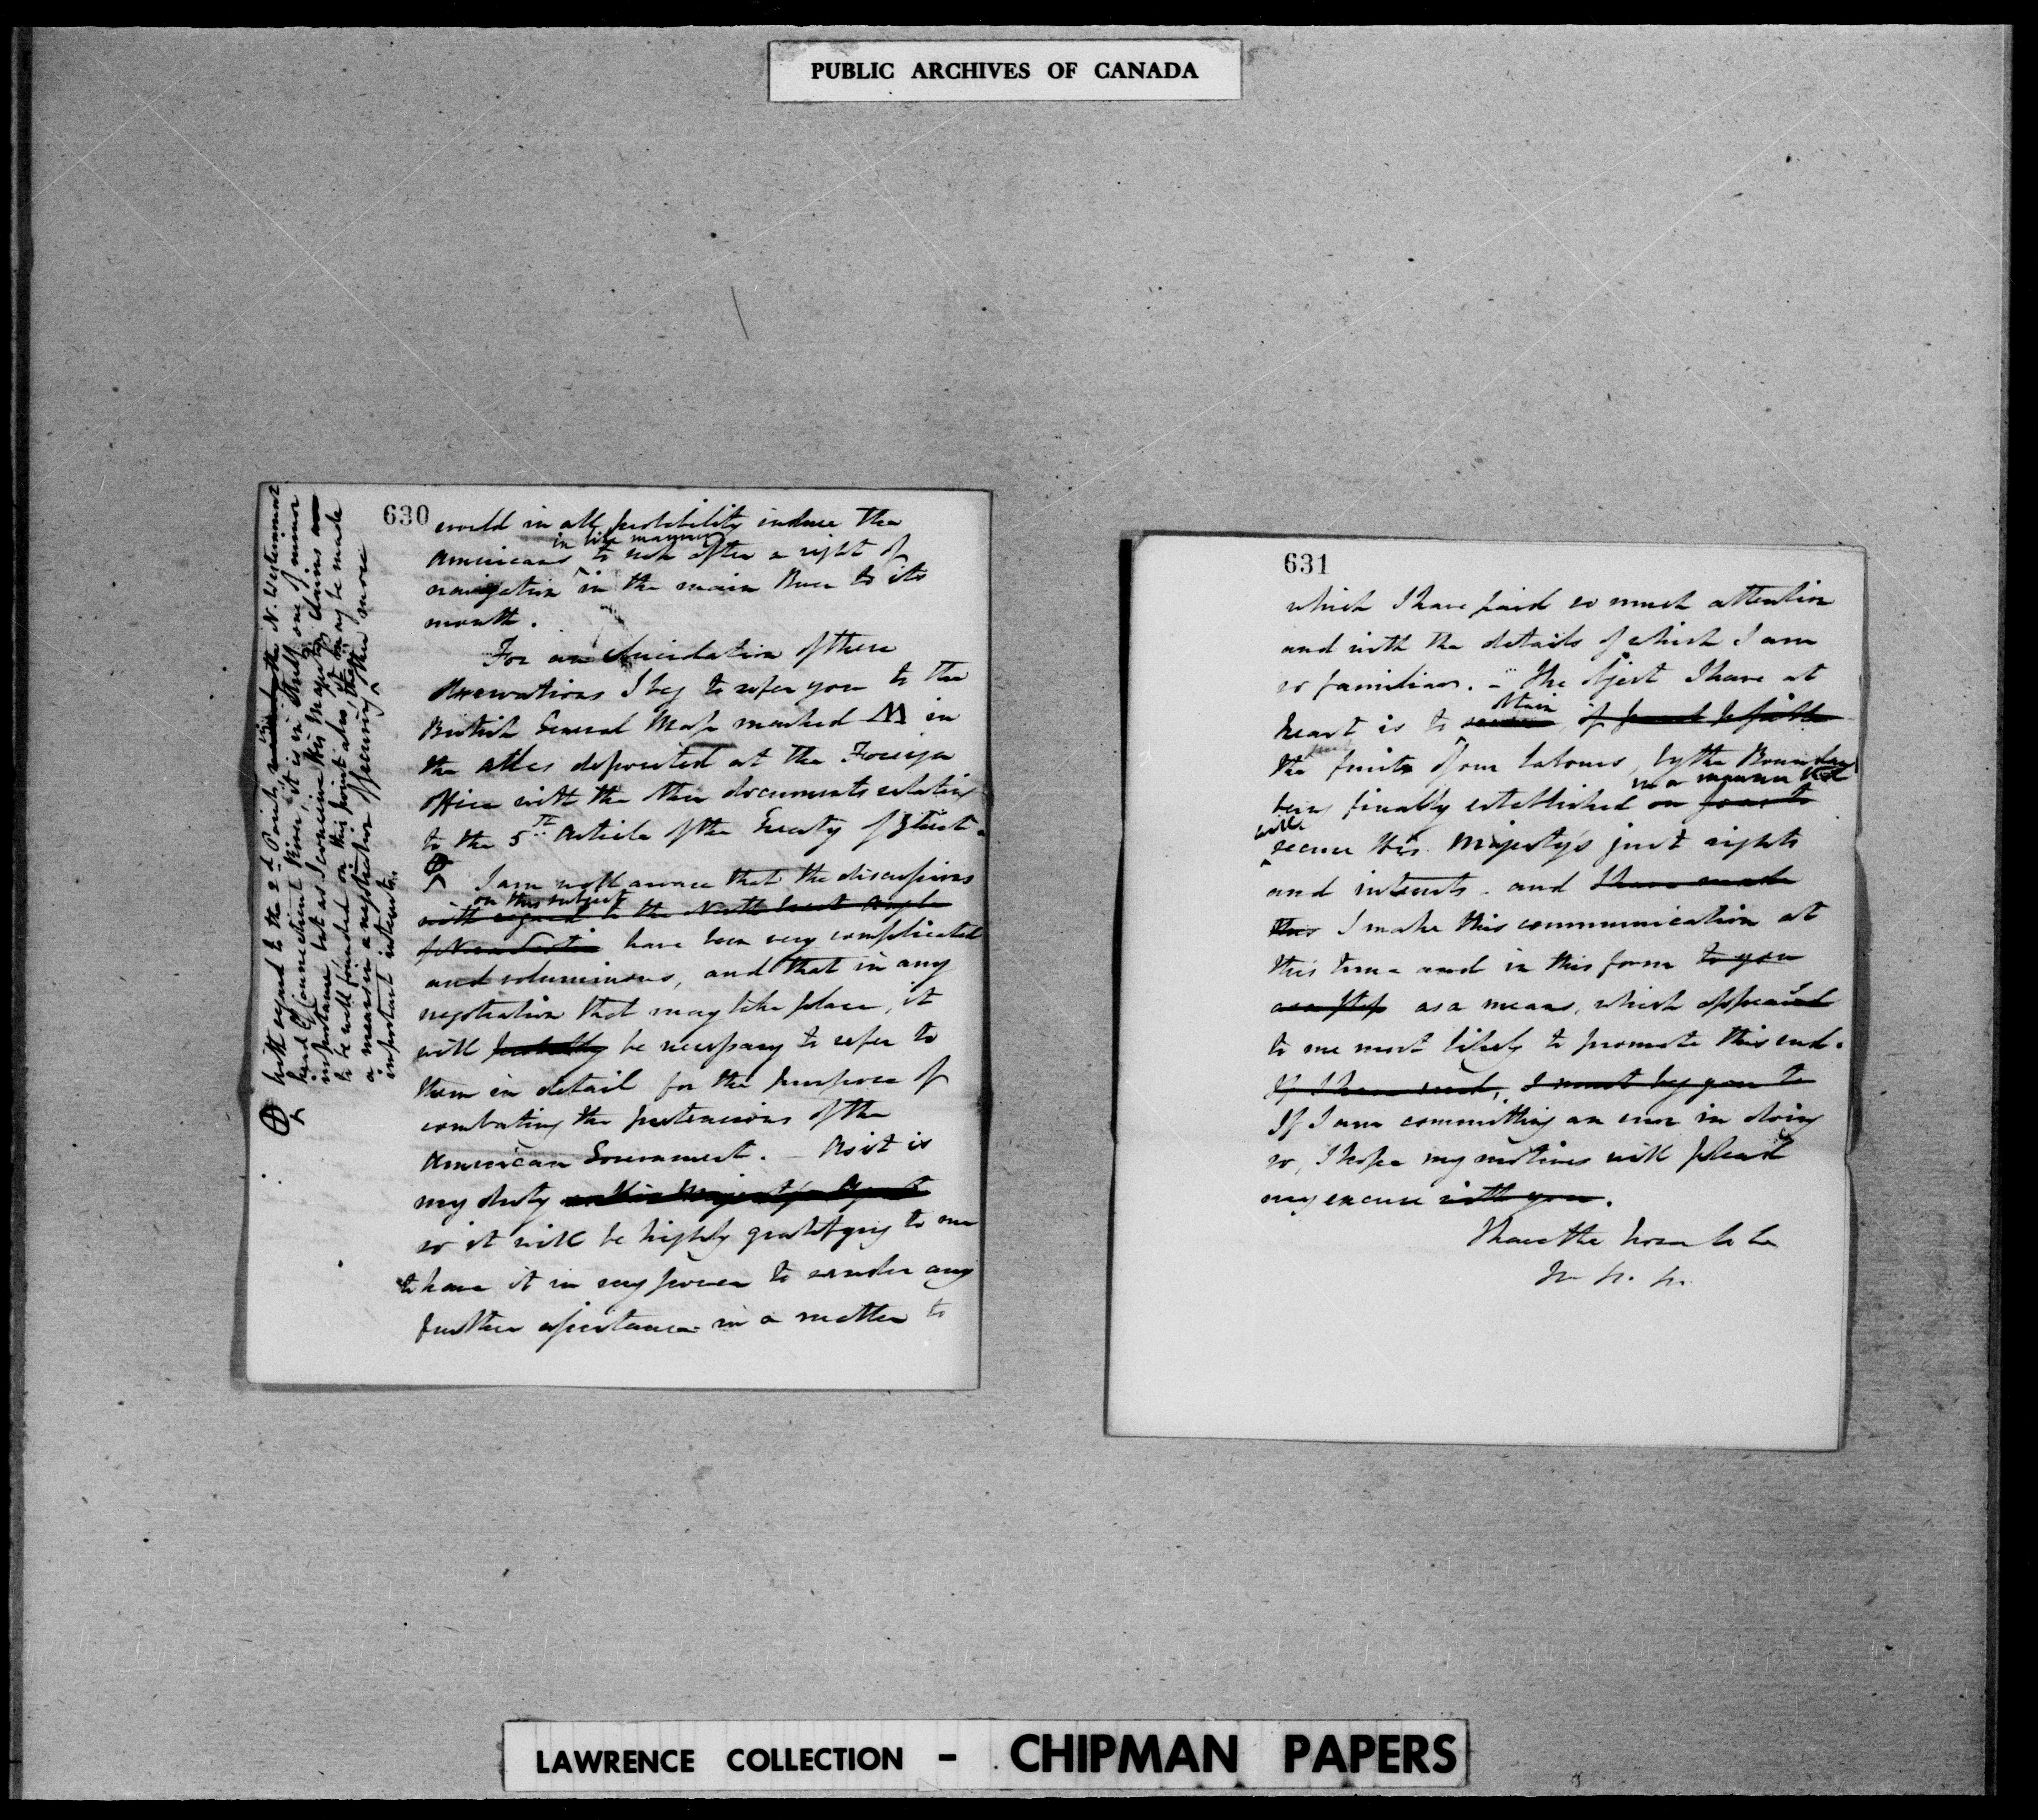 PUBLIC ARCHIVES OF CANADA
630
would in all probability induce the
in like manner
Americans to seek after a right of
navigation in the main River to its
mouth.
For an elucidation of these
observations I beg to refer you to the
British General Map marked M in
the atlas deposited at the Foreign
Office with the other documents relating
to the 5th Article of the Treaty of Ghent.
I am well aware that the discussions
on this subject
with regard to the North West Angle
of Nova Scotia have been very complicated
and voluminous, and that in any
negotiation that may take place, it
will probably be necessary to refer to
them in detail for the purpose of
combating the pretensions of the
American Government. – As it is
my duty as His Majesty's Agent
so it will be highly gratifying to me
to have it in my power to render any
further assistance in a matter to
With regard to the 2d Point, viz the N. Westernmost
head of Connecticut River, it is in itself one of minor
importance, but as I conceive His Majesty's claims
to be well founded on this point also, it may be made
a means in a negotiation of securing the more
important interests.
631
which I have paid so much attention
and with the details of which I am
so familiar. – The object I have at
obtain
heart is to if possible
the fruits of our labours, by the Boundary
in a manner that
being finally established on
will
secure His Majesty's just rights
and interests – and I have made
this I make this communication at
this time and in this form to you
as a step as a means, which appeared
to me most likely to promote this end.
If I have erred, I must beg you to
If I am committing an error in doing
so, I hope my motives will plead
my excuse with you.
I have the honor to be
LAWRENCE COLLECTION – CHIPMAN PAPERS